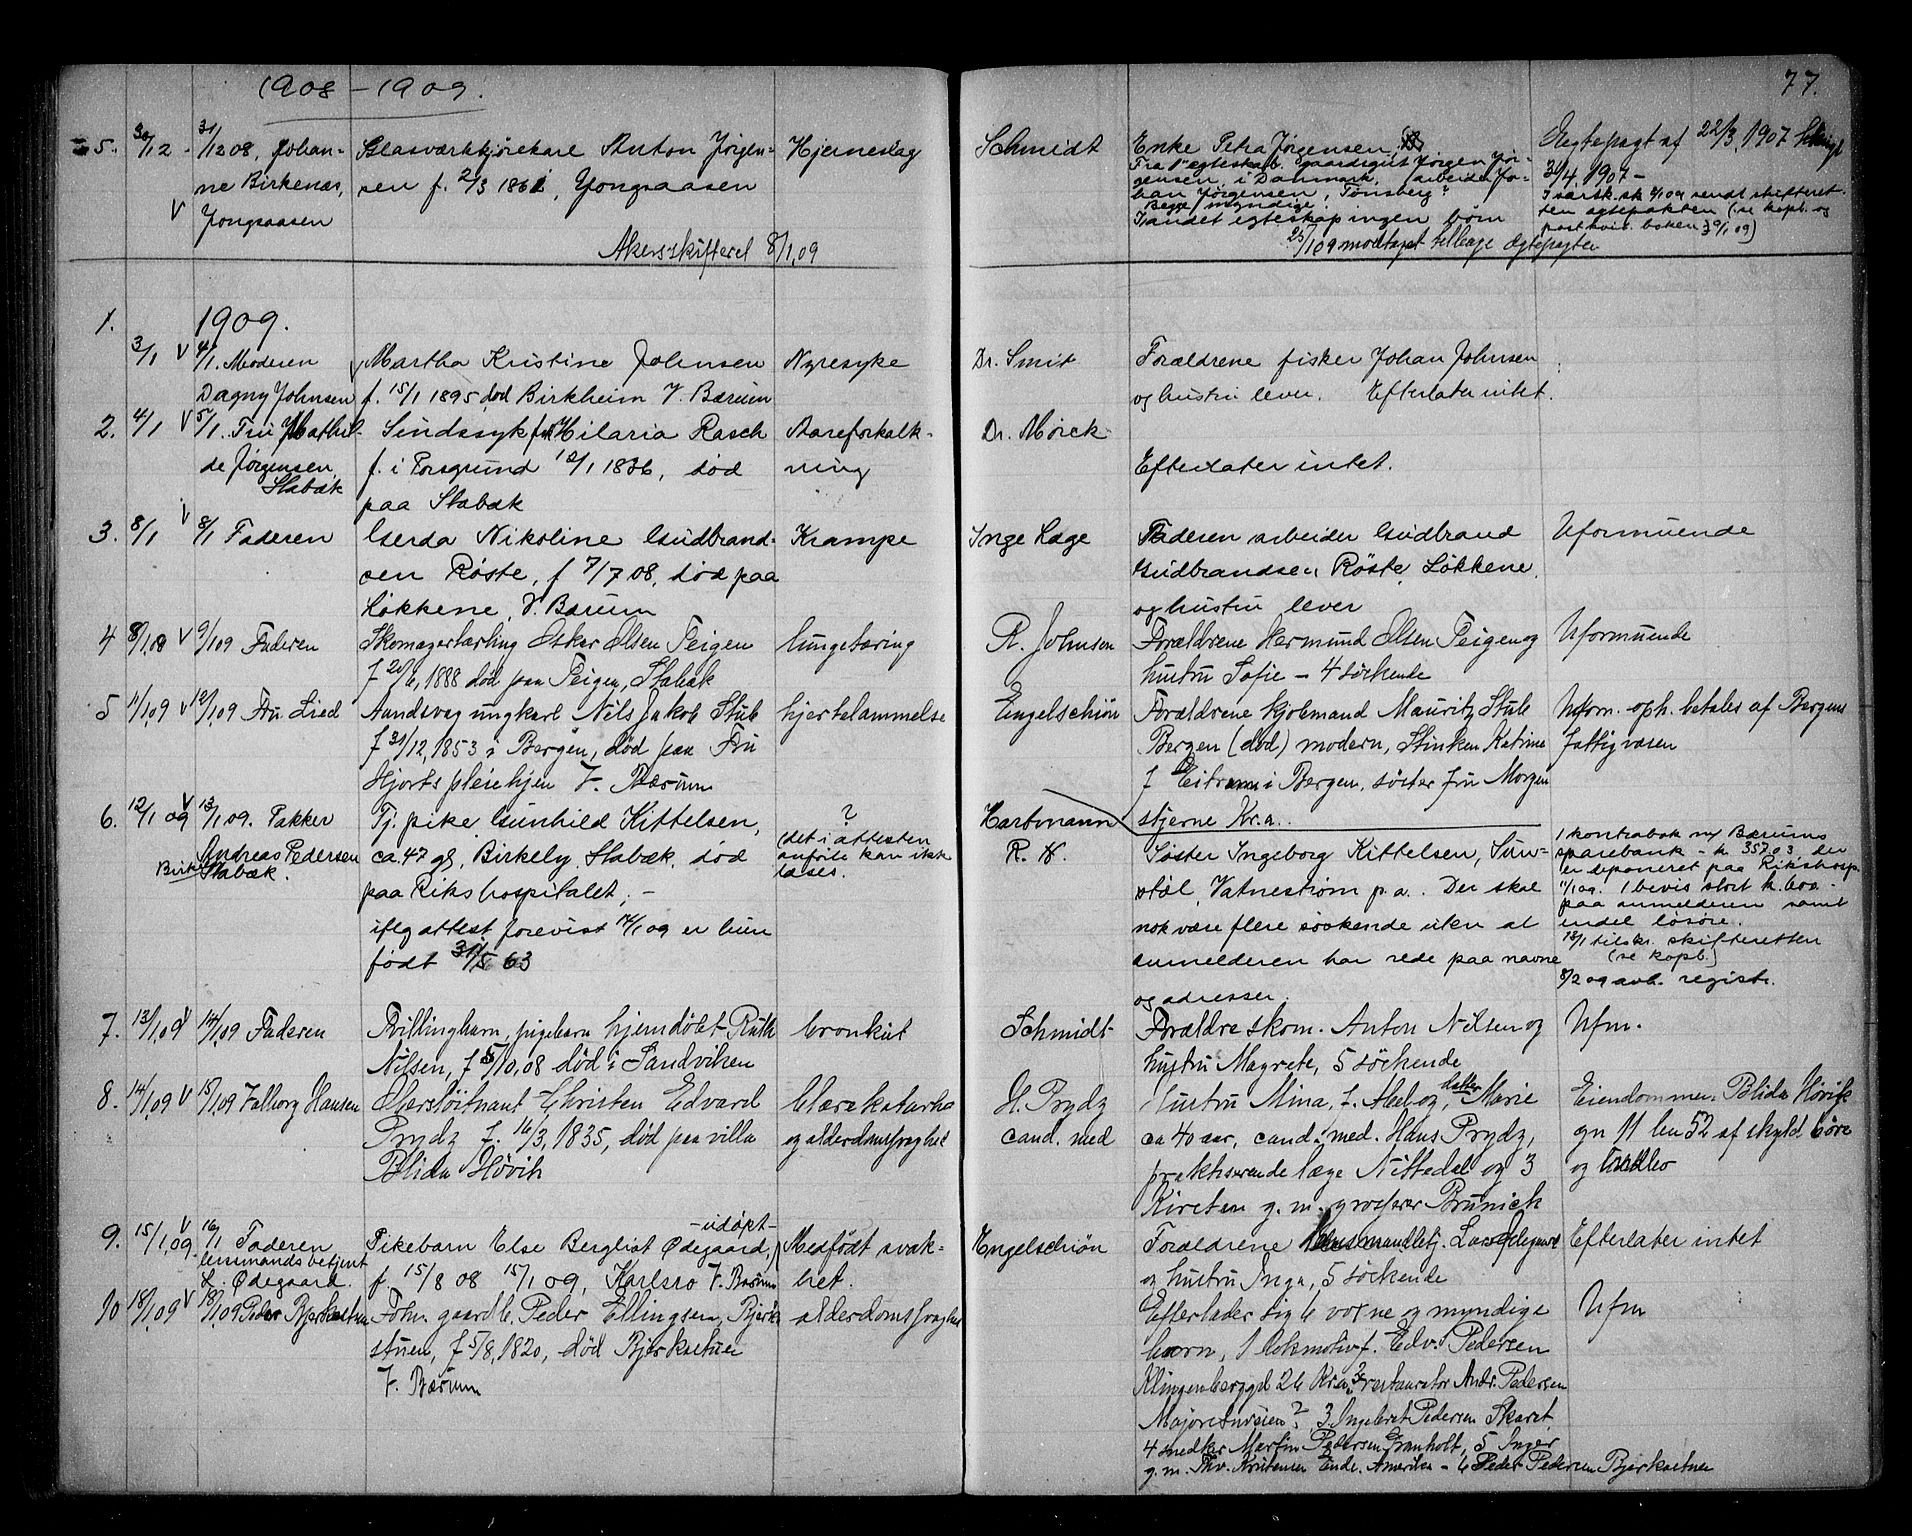 1908 - 1909.
77.
5. 30/12 - 31/12 08, Johan- Glasværkskjørekarl Anton Jørgen- Hjerneslag Schmidt Enke Petra Jørgensen.
ne Birkenæs, sen f. 2/3 1861, Jongsaasen
Jongsaasen
Akersskifteret 8/1,09
Fra 1ste egteskab gaardeigut Jørgen Jør-
gensen i Danmark, arbeider Jo-
han Jørgensen, Tønsberg?
Begge myndige.
I andet egteskap ingen børn
25/1 09 modtaget tilbage egtepagten
Egtepagt af 22/3 1907
3/4 1907 -
sendt skifteret-
ten egtepakten (se kopb. og
postkvit. boken 30/1 09)
1. 1909.
3/1 V 4/1. Moderen Martha Kristine Johnsen Nyresyke Dr. Smit Forældrene fisker Johan Johnsen
Dagny Johnsen f. 15/1 1895, død Birkheim V. Bærum og hustru lever. Efterlater intet.
2. 4/1 V 5/1. Fru Mathil- Sindssyk frk Hilaria Rasch Aareforkalk- Dr. Mörck
de Jørgensen, f. i Porsgrund 12/1 1836, død ning Efterlater intet.
Stabæk paa Stabæk
3. 8/1 V 8/1 Faderen Gerda Nikoline Gudbrand- Krampe Inge Lage Faderen arbeider Gudbrand Uformuende
sen Røste, f 7/7 08, død paa Gudbrandsen Røste, Løkkene,
Løkkene, V. Bærum og hustru lever
4 8/1 09 V 9/1 09 Faderen Skomagerlærling Oskar Olsen Teigen lungetæring R. Johnsen Forældrene Hermund Olsen Teigen og Uformuende
f 20/6, 1888 død paa Teigen, Stabæk hustru Sofie - 4 søskende
5 11/1,09 V 12/1 09 Fru Lied Aandsvag ungkarl Nils Jakob Stub hjertelammelse Engelschiøn Forældrene kjøbmand Mauritz Stub Uform. oph. betales af Bergens
f 31/12, 1853 i Bergen, død paa Fru Bergen (død) modern, Stinken Katrine fattigvæsen
Hjorts pleiehjem V. Bærum f Eitrem i Bergen, søster fru Morgen
stjerne Kr.a.
6. 12/1 09 V 13/1 09. Pakker Tj. pike Gunhild Kittelsen, ? Hartmann
Andreas Pedersen ca. 47 gl, Birkely Stabæk, død (det i attesten R. H. Søster Ingeborg Kittelsen, Sun-
Stabæk. paa Rikshospitalet; - anførte kan ikke støl, Vatnestrøm p.a. Der skal
iflg attest forevist 14/1 09 er hun læses. nok være flere søskende uten at
født 31/5 63 anmelderen har rede paa navne
og adresser.
1 kontrabok m/ Bærums
sparebank - kr. 357.03, der
er deponeret paa Rikshosp.
11/1 09. 1 bevis stort kr. 600 -
paa anmelderen samt
endel løsøre.
13/1 tilskr. skifteretten
(se kopb.)
8/2 09 avh. registr.
7. 13/1,09 V 14/1,09 Faderen Tvillingbarn, pigebarn hjemdøbt Ruth bronkit Schmidt Forældre skom. Anton Nilsen og Ufm.
Nilsen, f 5/10,08 død i Sandviken hustru Magrete, 5 søskende
8. 14/1,09 V 15/1 09 Valborg Hansen Oberstløitnant Christen Edvard blærekatarh H. Prydz Hustru Mina, f. Abel og, datter Marie Eiendommen Blida Høvik
Prydz f. 16/3, 1835, død paa villa og alderdomssvaghet cand. med ca 40 aar, cand. med. Hans Prydz, gn 11 bn 52 af skyld 60 øre
Blida Høvik praktiserende læge Nittedal og 3 og indbo
Kirsten g. m. grosserer Brunich
9. 15/1,09. V 16/1 Faderen Pikebarn Else Bergliot Ødegaard, - udøpt - Medfødt svak- Engelschiøn Forældrene Lars Ødegaard Efterlater intet
lensmandsbetjent f. 15/8 08 15/1 09, Karlsro V. Bærum het. og hustru Inga, 5 søskende
L. Ødegaard.
10 18/1,09 V 18/1,09 Peder Bjerkestuen Fohn. gaardb. Peder Ellingsen, Bjerke- alderdomssvaghet Efterlader sig 6 voxne og myndige Ufm
stuen, f 5/8, 1820, død Bjerkestuen børn, 1 lokomotivf. Edv. Pedersen
V. Bærum Klingenberggd 26 Kr.a, 2 restauratør Andr. Pedersen
Majorstuveien? 3 Ingeborg Pedersen Skaret
4 snedker Martin Pedersen Granholt, 5 Inger
g. m. Thv. Kristensen Amerika - 6 Peder Pedersen Bjerkestuen